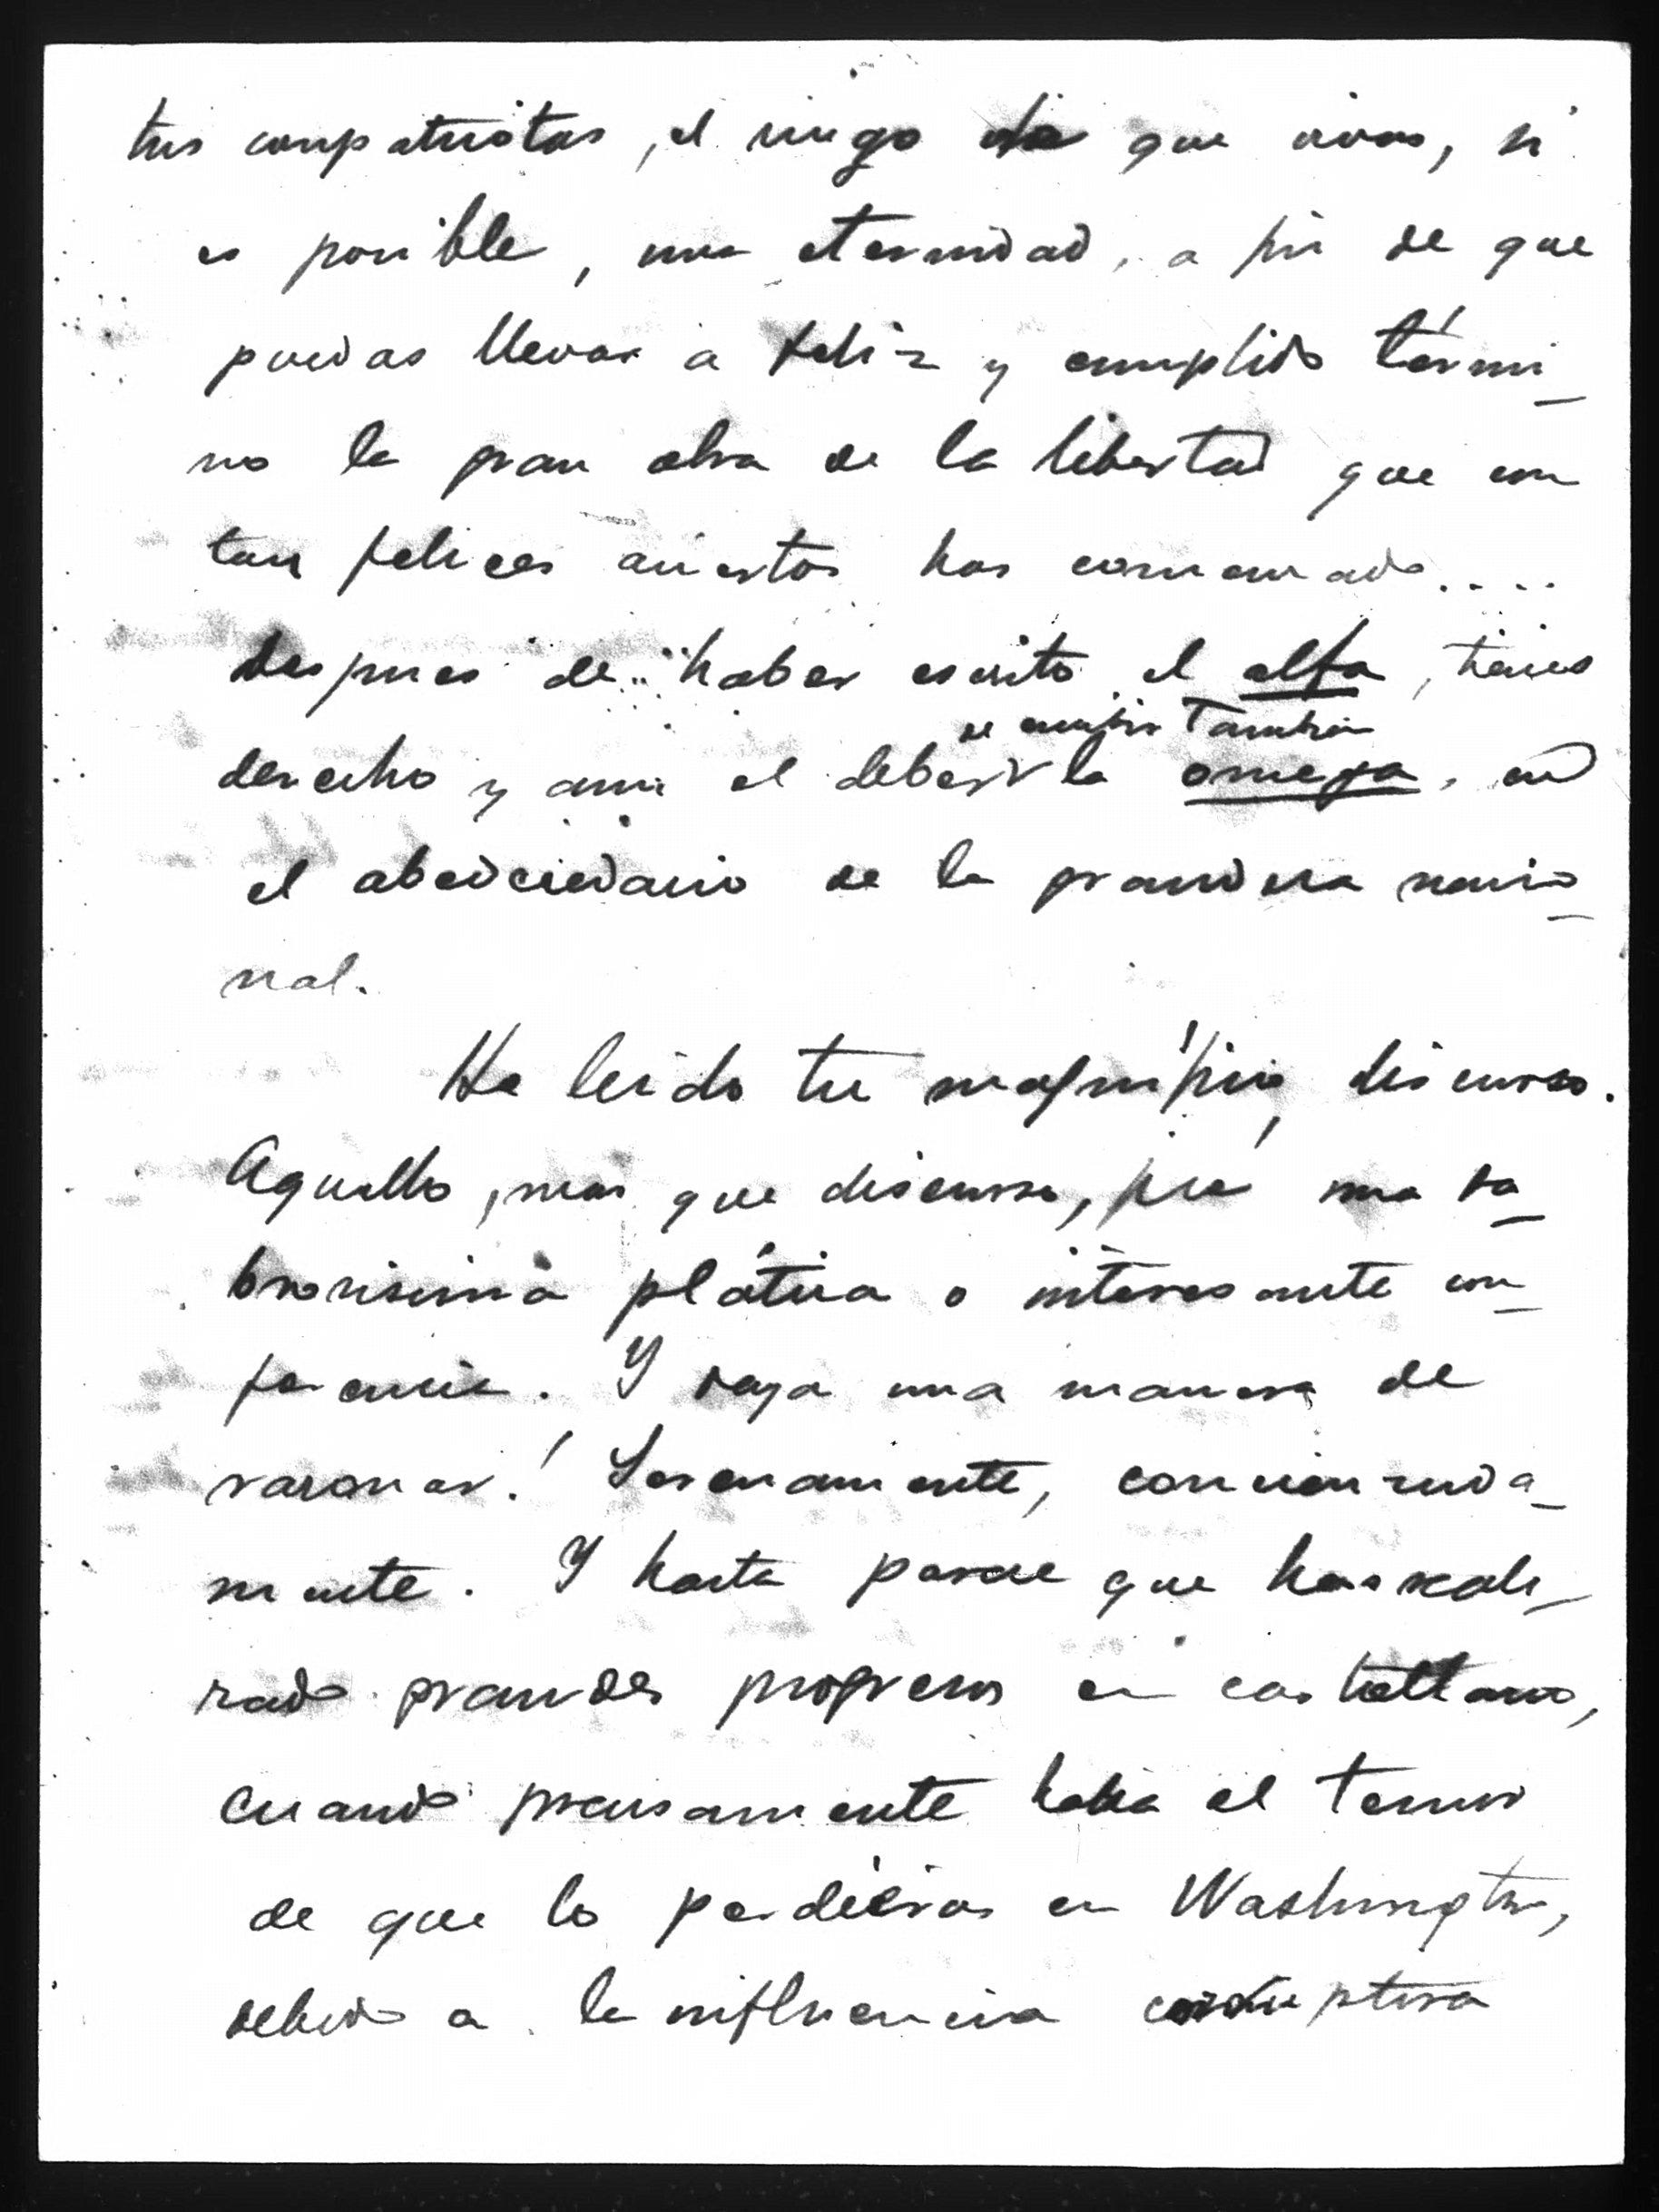 tus compatriotas, el ruego de que vivas, si
es posible, una eternidad, a fin de que
puedas llevar a feliz y cumplido térmi-
no la gran obra de la libertad que con
tan felices aciertos has comenzado....
despues de haber escrito el alfa, tienes
derecho y aun el deber de escribir tambien la omega, en
el abedciedario de la grandeza nacio-
nal.
He leido tu magnífico discurso.
Aquello, mas que discurso, fué una sa-
brosisima plática o interesante con-
ferencia. Y vaya una manera de
razonar! Serenamente, concienzuda-
mente. Y hasta parece que has reali-
zado grandes progresos en castellano,
cuando precisamente había el temor
de que lo perdieras en Washington,
debido a la influencia corruptora